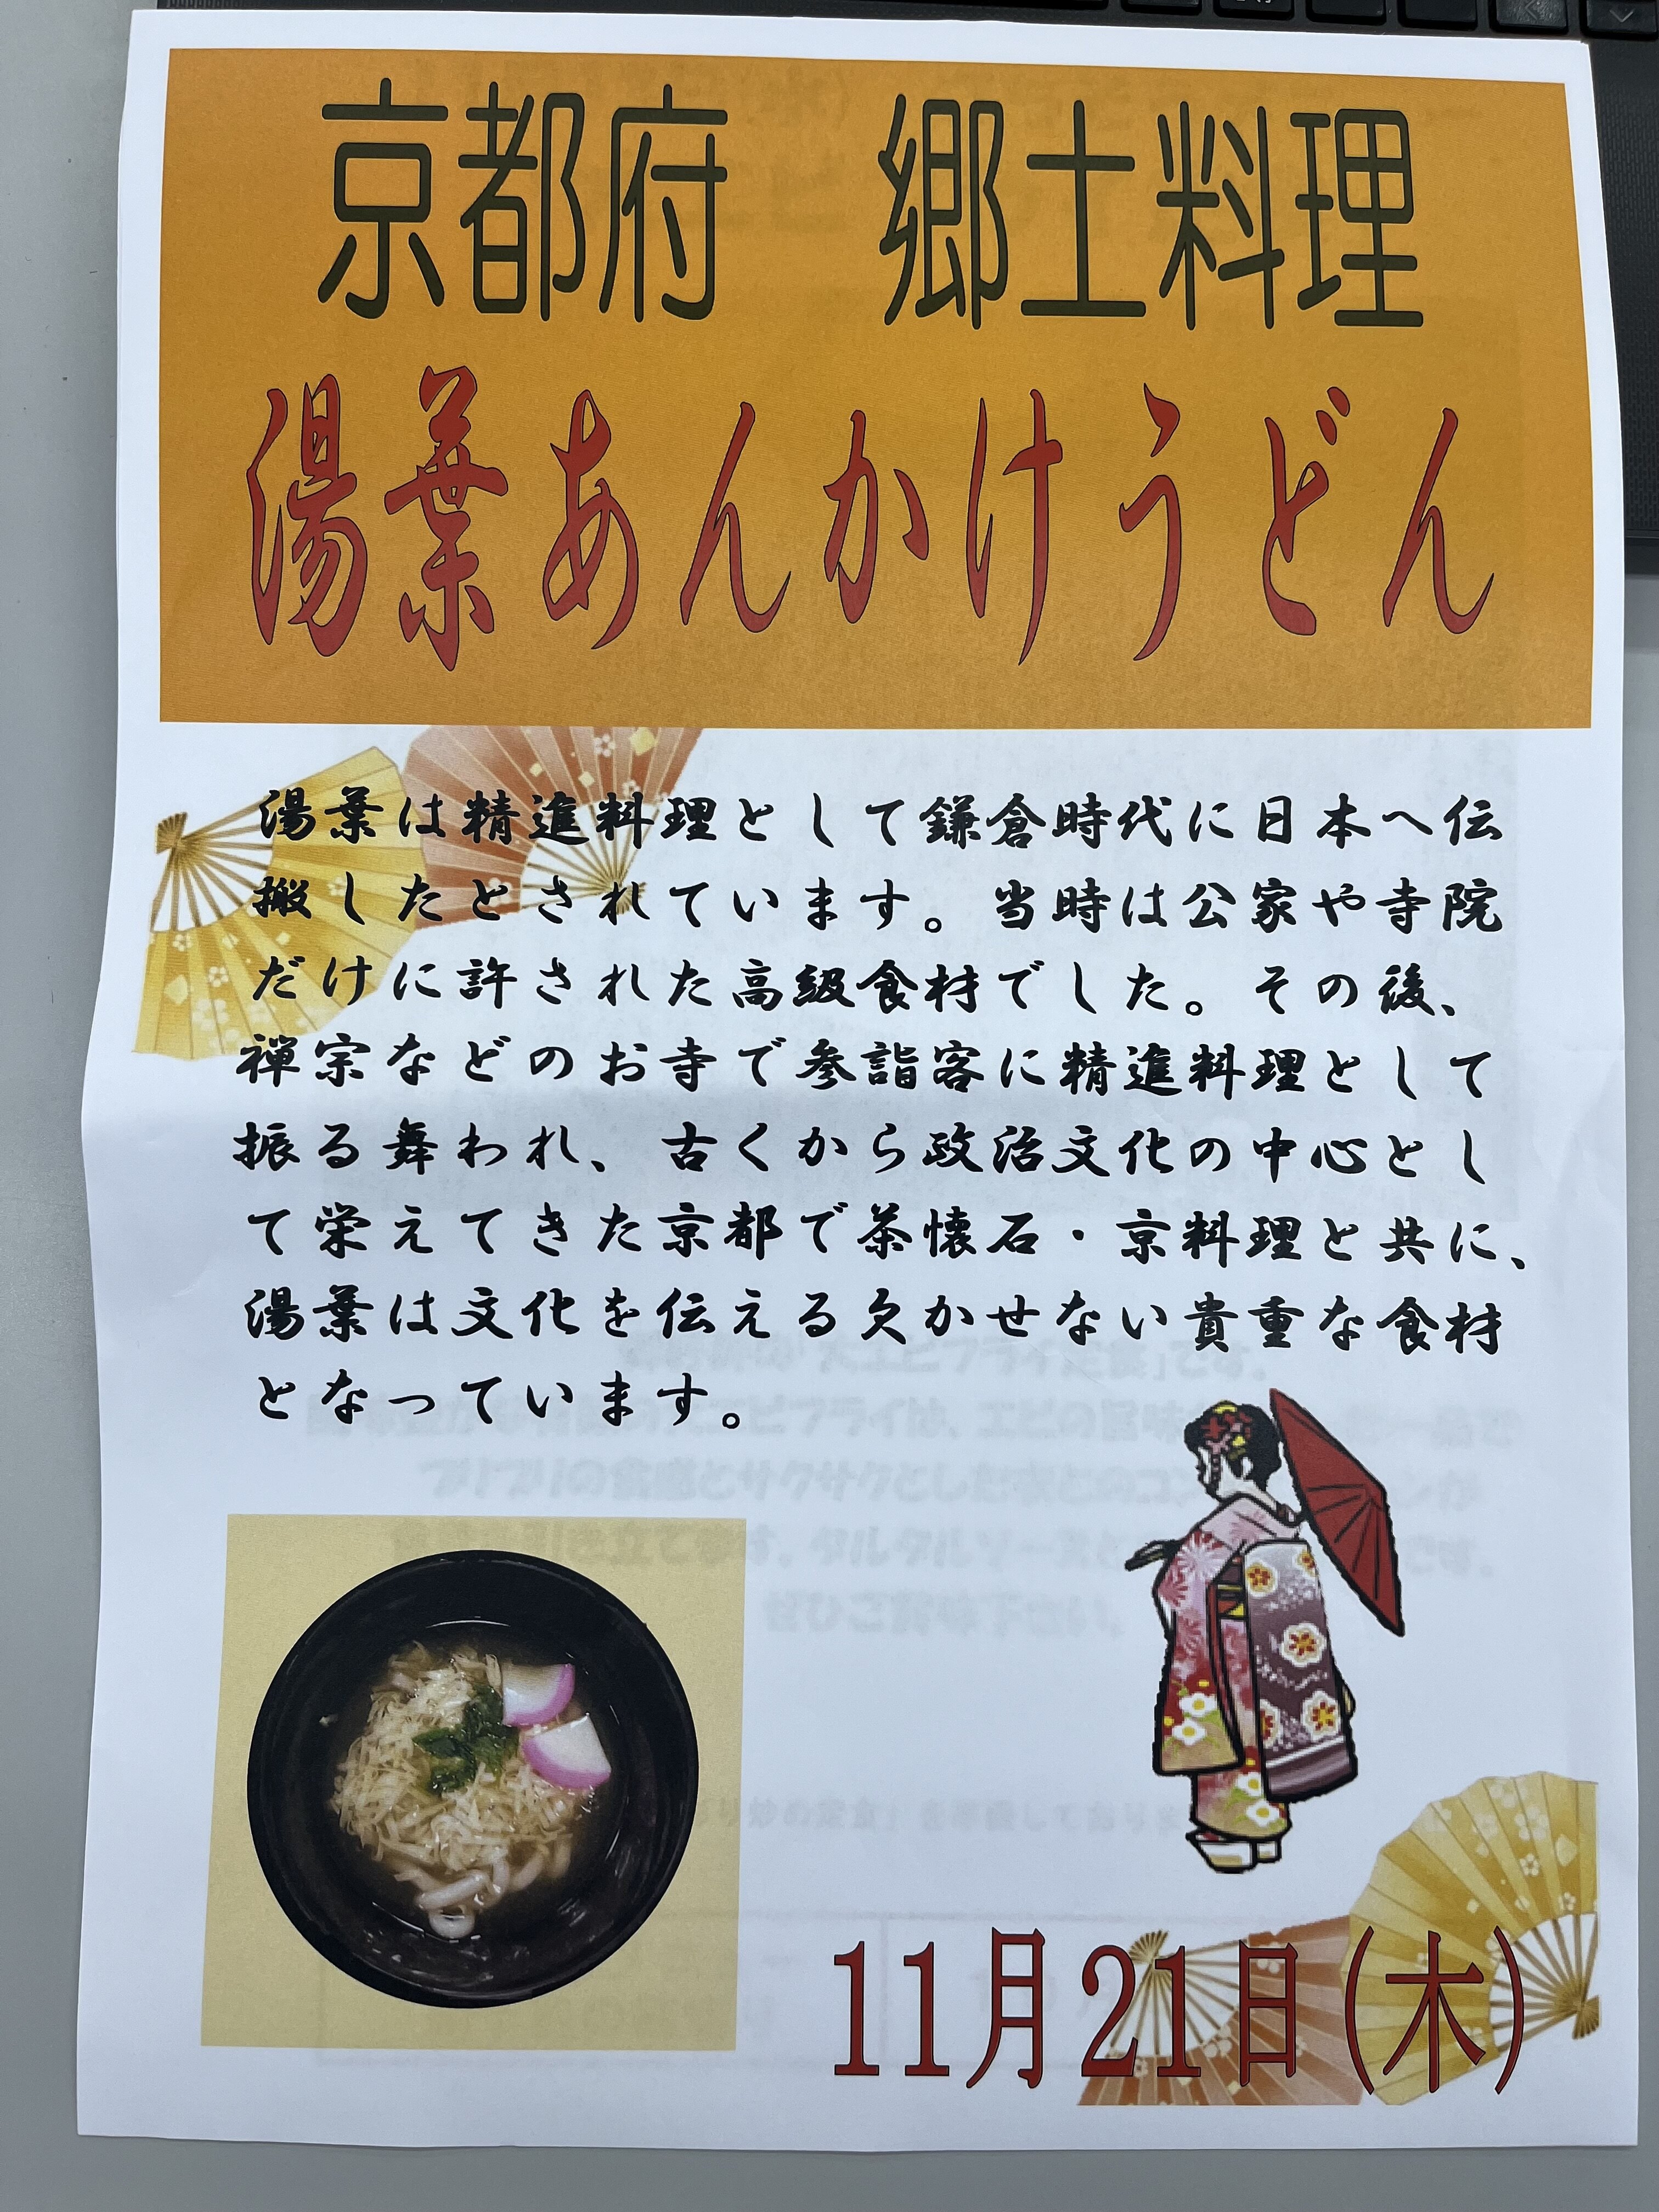 京都府　郷土料理
湯葉あんかけうどん
湯葉は精進料理として鎌倉時代に日本へ伝
搬したとされています。当時は公家や寺院
だけに許された高級食材でした。その後、
禅宗などのお寺で参詣客に精進料理として
振る舞われ、古くから政治文化の中心とし
て栄えてきた京都で茶懐石・京料理と共に、
湯葉は文化を伝える欠かせない貴重な食材
となっています。
11月21日(木)